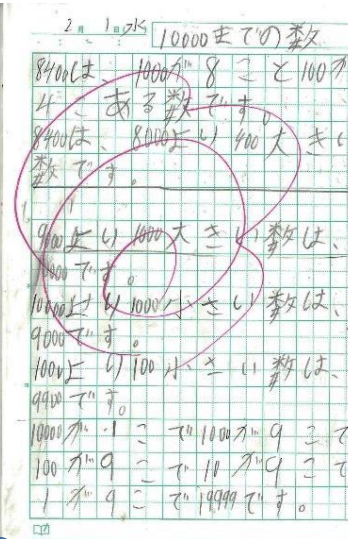 2月 1日 水 10000までの数
8400は、1000が8こと100が
4こある数です。
8400は、8000より400大きい
数です。
9000より1000大きい数は、
10000です。
10000より1000小さい数は、
9000です。
1000より100小さい数は、
9900です。
10000が1こで1000が9こで
100が9こで10が9こで
1が9こで19999です。